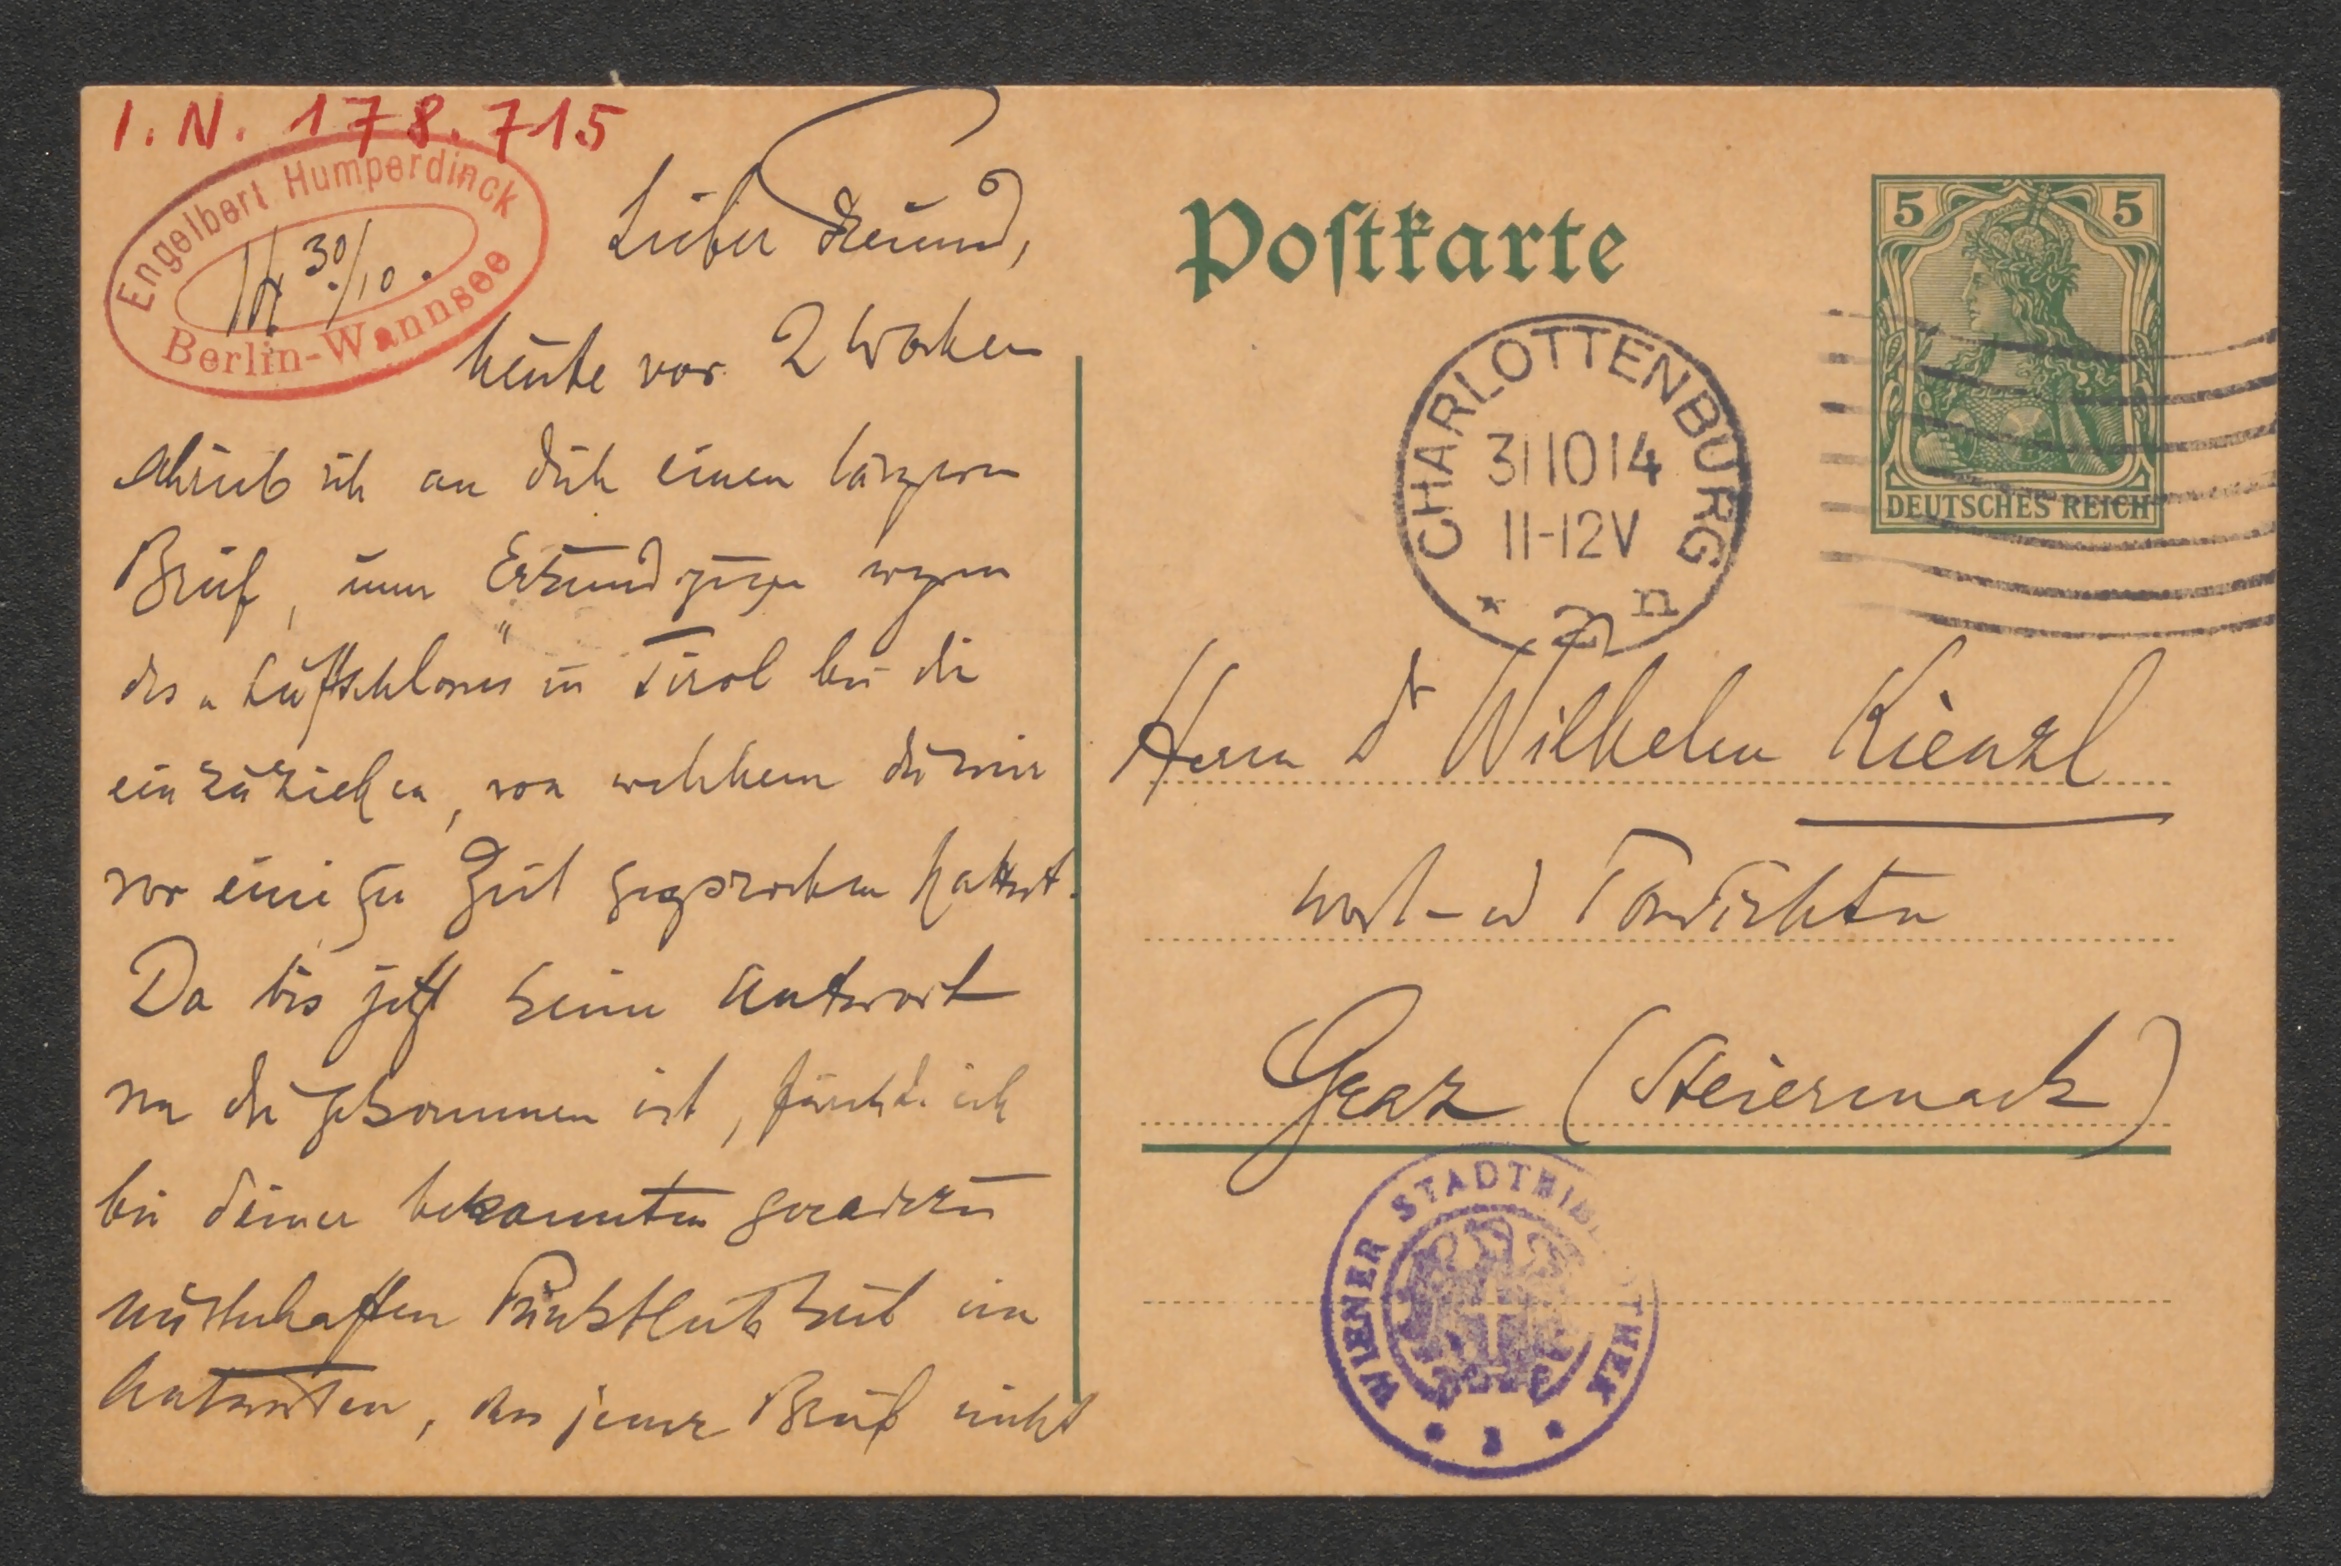 I. N. 178.715
Engelbert Humperdinck
30/10.
Berlin-Wannsee
Lieber Freund,
heute vor 2 Wochen
schrieb ich an dich einen längeren
Brief, um Erkundigungen wegen
des „Luftschlosses" in Tirol bei dir
einzuziehen, von welchem du mir
vor einiger Zeit gesprochen hattest.
Da bis jetzt keine Antwort
von dir gekommen ist, fürchte ich
bei deiner bekannten geradezu
musterhaften Pünktlichkeit im
Antworten, das jener Brief nicht
Postkarte
5 5
DEUTSCHES REICH
CHARLOTTENBURG
31 10 14
11-12V
* 2 n
Herrn Dr Wilhelm Kienzl
Wort- u Tondichter
Graz (Steiermark)
WIENER STADTBIBLIOTHEK